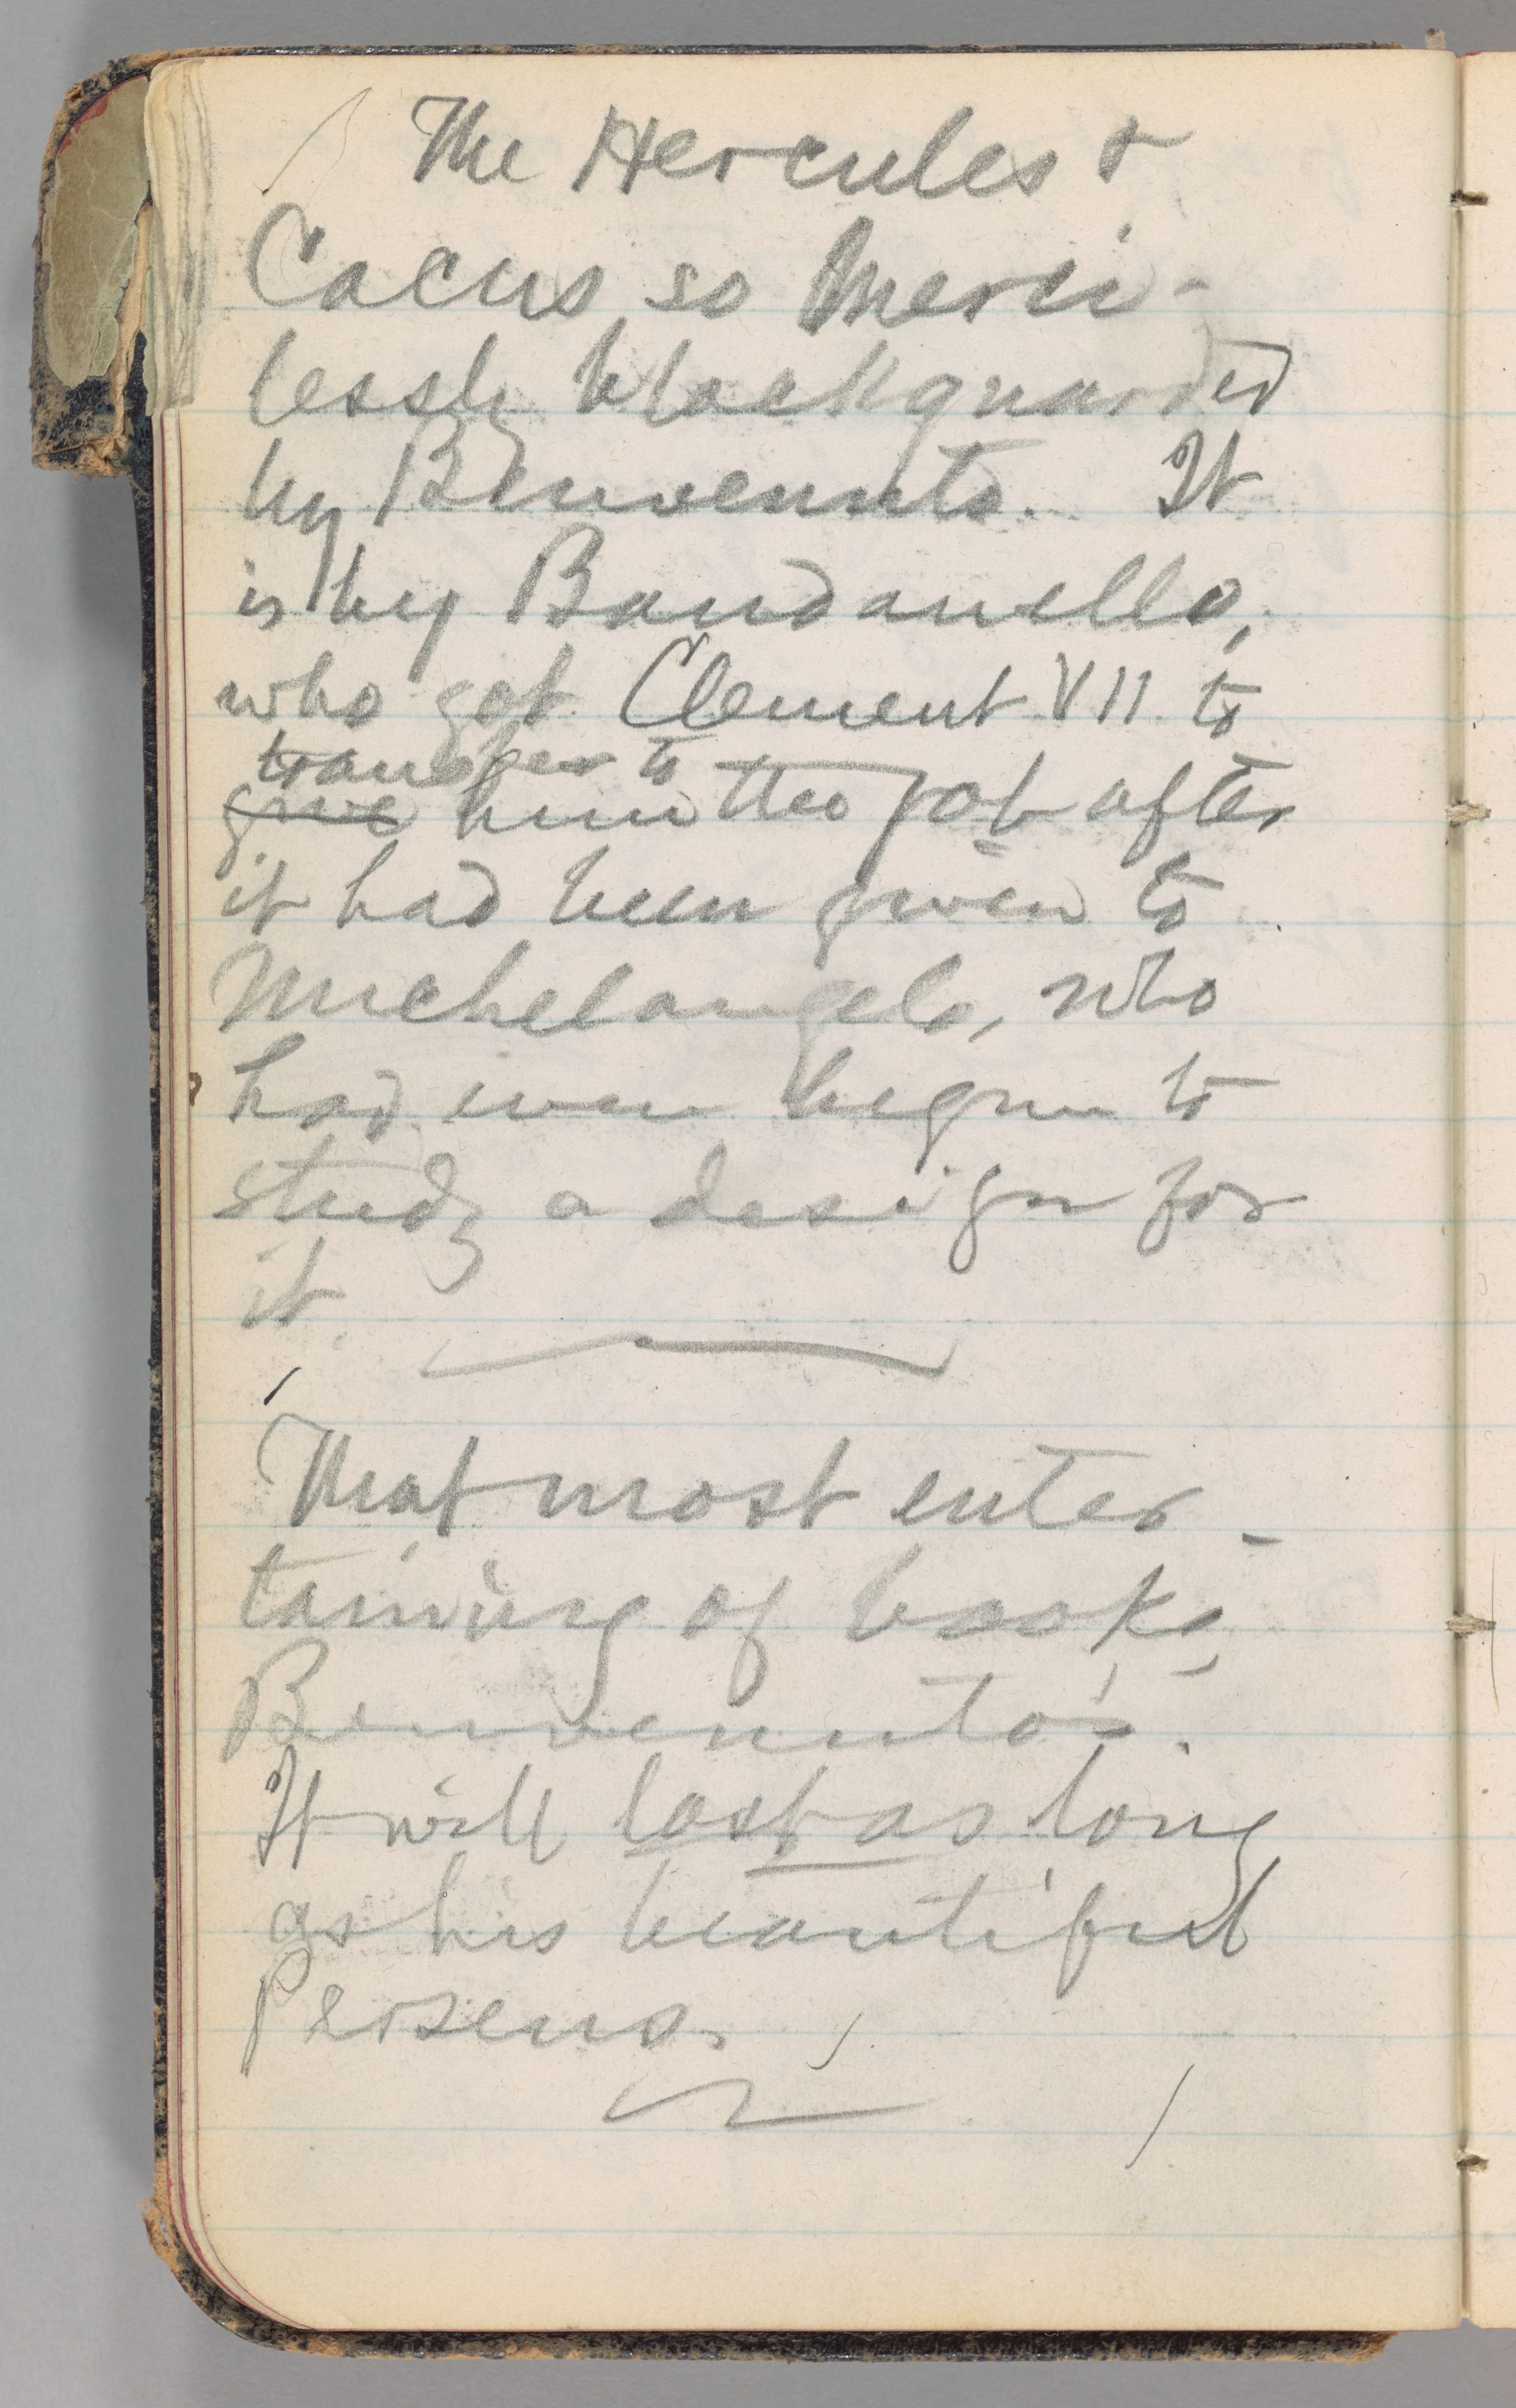 The Hercules &
Cacus so merci-
lessly blackguarded
by Benvenuto. It
is by Bandanello,
who got Clement VII to
transfer to
give him the job after
it had been given to
Michelangelo, who
had even begun to
study a design for
it.
That most enter-
taining of books,
Benvenuto's.
It will last as long
as his beautiful
Perseus.